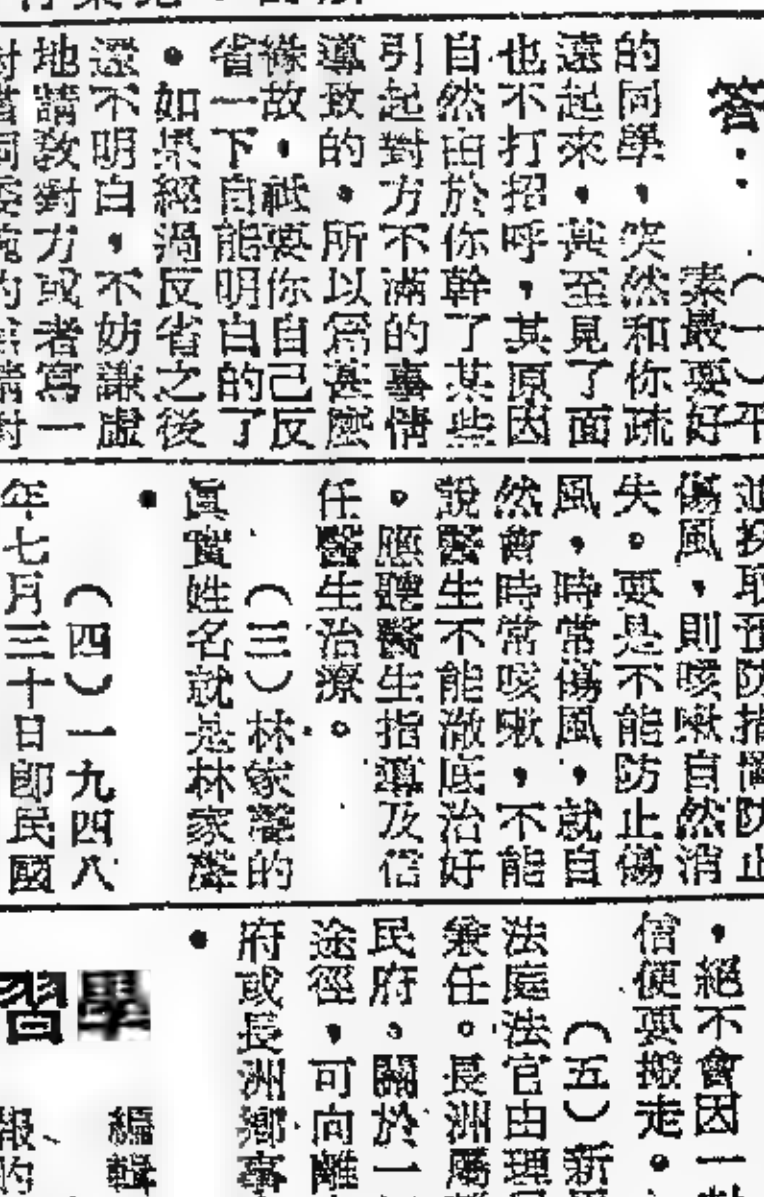 答：（一）平
素最要好
的同學，突然和你疏
遠起來，甚至見了面
也不打招呼，其原因
自然由於你幹了某些
引起對方不滿的事情
導致的。所以爲甚麼
緣故，祇要你自己反
省一下自能明白的了
。如果經過反省之後
還不明白，不妨謙虛
地請教對方或者寫一
取預防措
防止
傷風，則咳嗽自然消
失。要是不能防止傷
風，時常傷風，就自
然會時常咳嗽，不能
說醫生不能澈底治好
。應聽醫生指導及信
任醫生治療。
（三）林家聲的
眞實姓名就是林家聲
。
（四）一九四八
年七月三十日卽民國
，絕不會因一
信便要搬走。
（五）新
法庭法官由理
兼任。長洲屬
民府。關於一
途徑，可向離
府或長洲鄉事
。
學習
編輯
報的